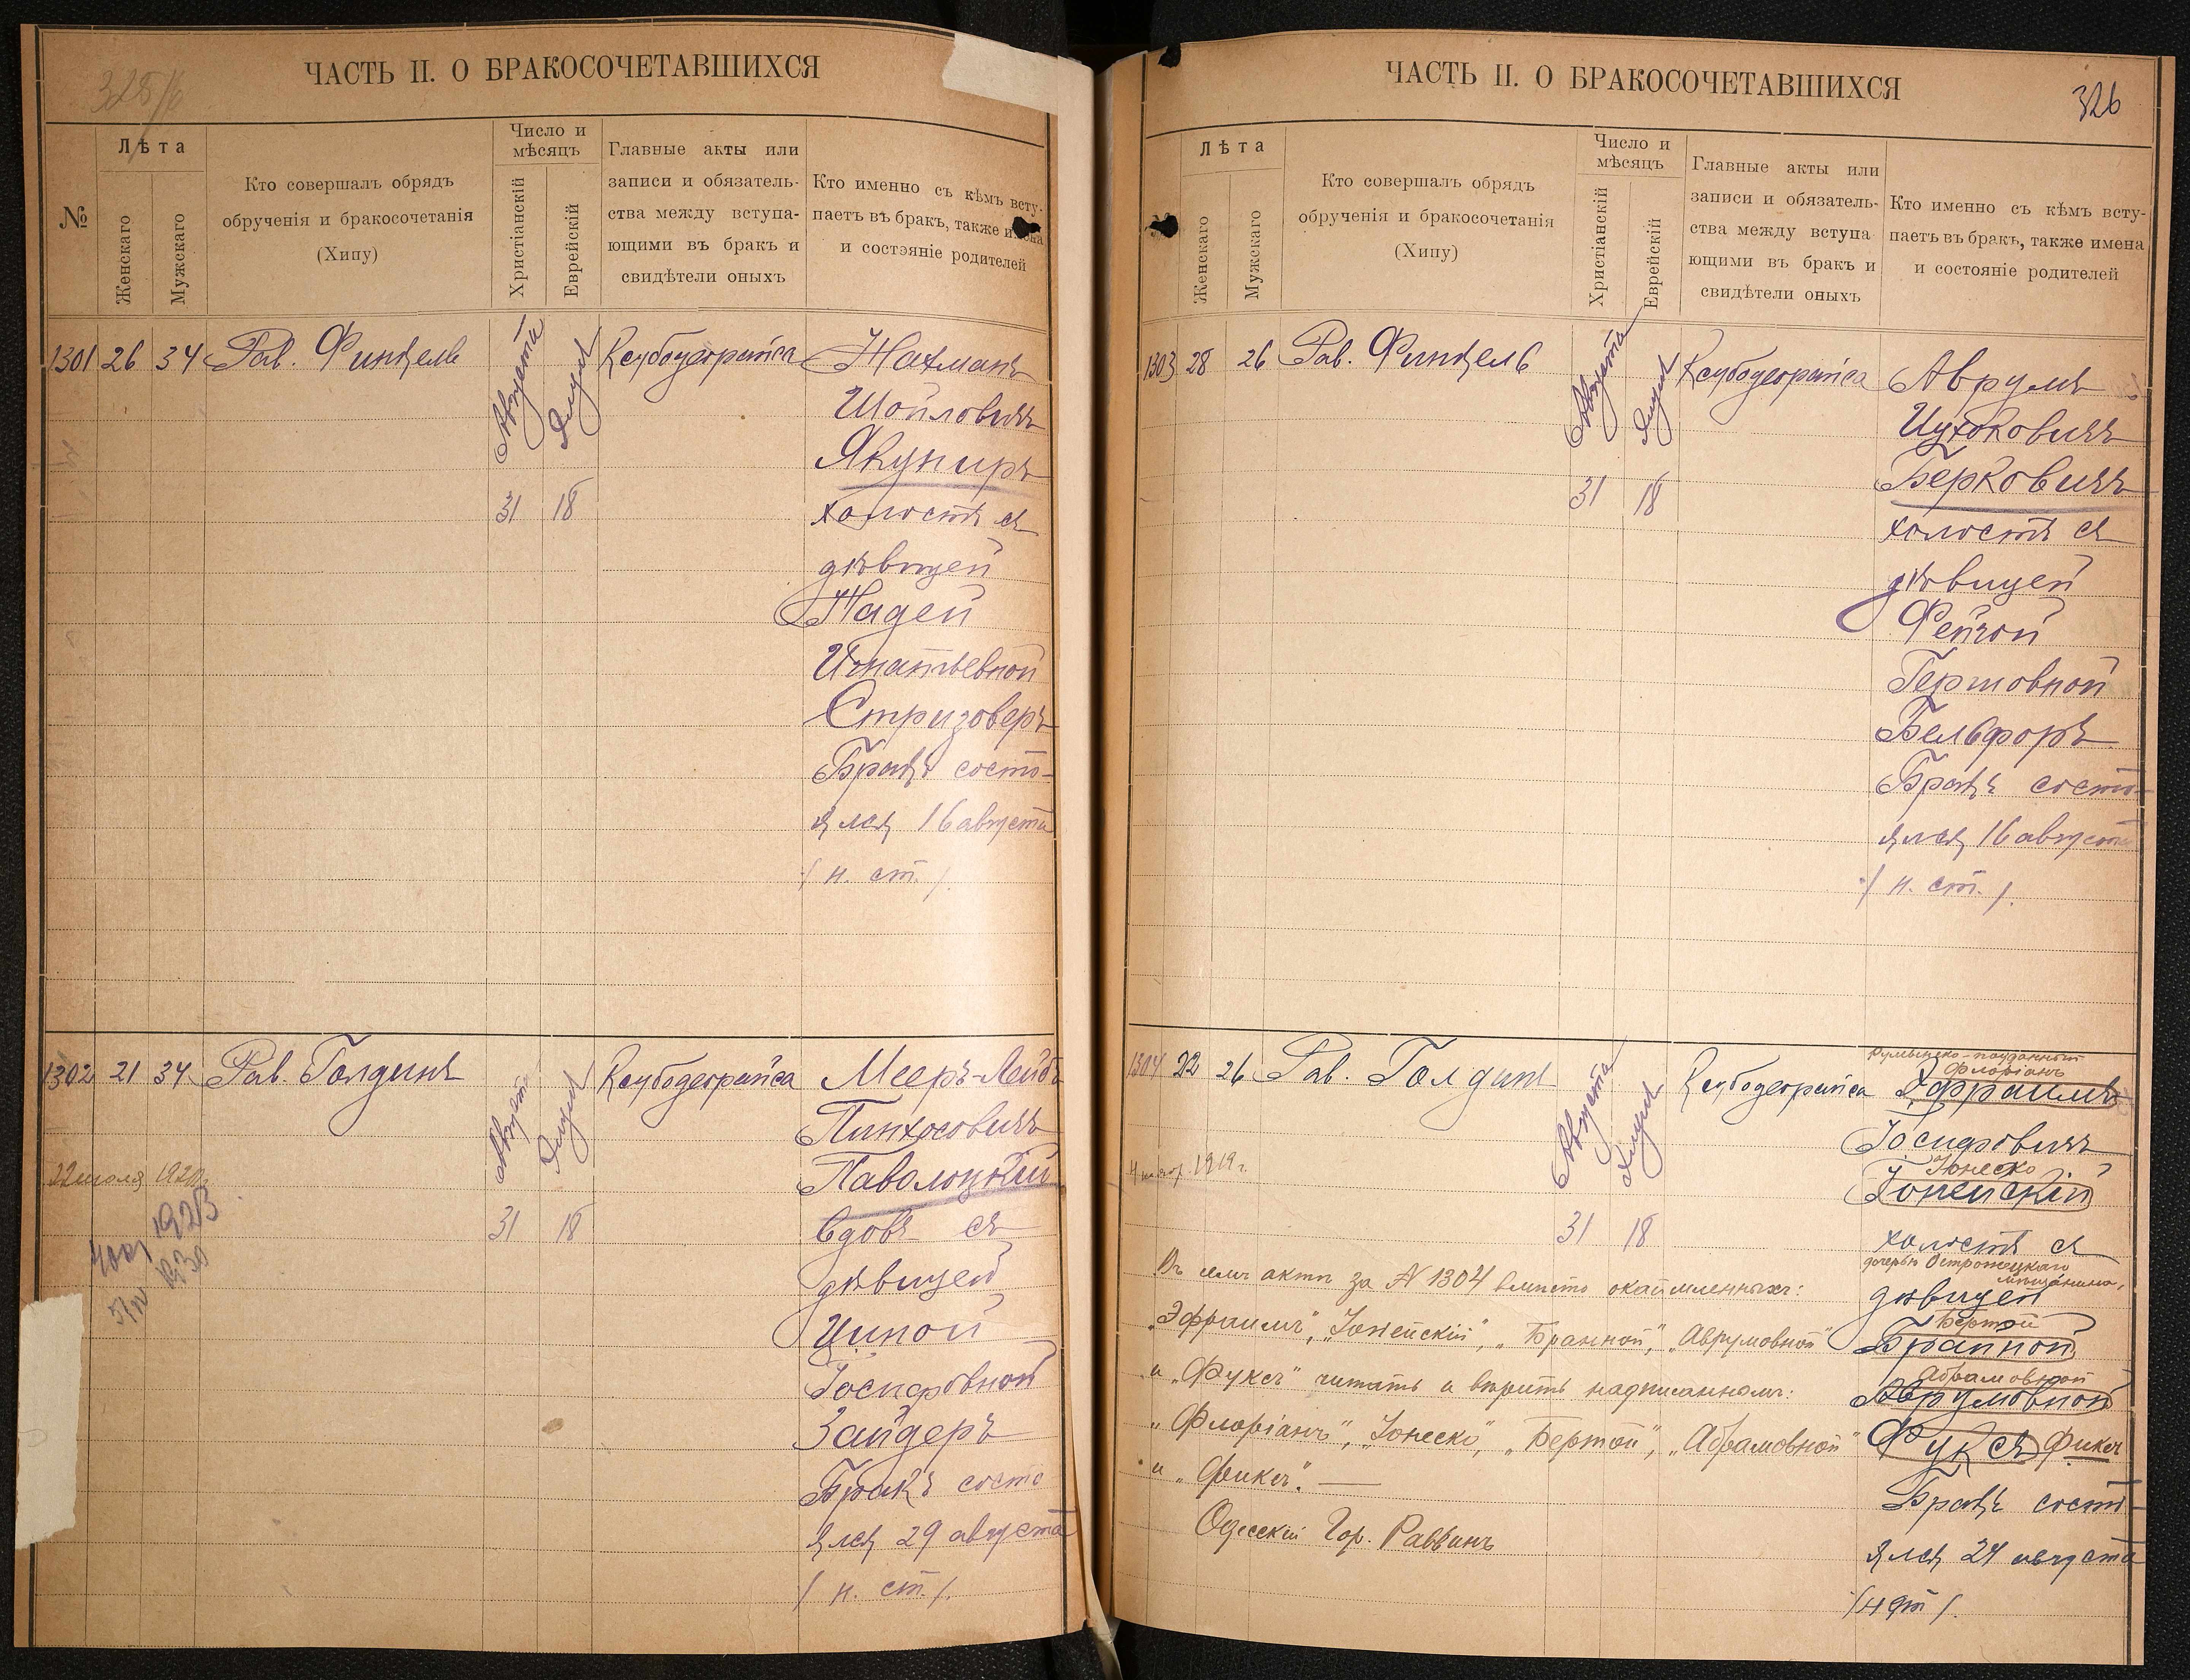 325/б
ЧАСТЬ II. О БРАКОСОЧЕТАВШИХСЯ
№
Лѣта
Женскаго
Мужскаго
Кто совершалъ обрядъ
обрученія и бракосочетанія
(Хипу)
Число и
мѣсяцъ
Христіанскій
Еврейскій
Главные акты или
записи и обязатель-
ства между вступа-
ющими въ бракъ и
свидѣтели оныхъ
Кто именно съ кѣмъ всту-
паетъ въ бракъ, также имена
и состояніе родителей
1301 26 34 Рав. Финкель
Августа
Элула
31 18
Ксубодеорайса
Нахманъ
Шойловичъ
Якуниръ
холостъ съ
дѣвицей
Надей
Игнатьевной
Стризоверъ
Бракъ состо-
ялся 16 августа
/ н. ст. /.
1302 21 34 Рав. Голдинъ
Август
Элула
31 18
Ксубодеорайса
22 июля 1920г.
1923
Мееръ-Лейбъ
Пинхосовичъ
Паволоцкій
вдовъ съ
дѣвицей
Ципой
Іосифовной
Зайдеръ
Бракъ состо
ялся 29 августа
/ н. ст. /.
ЧАСТЬ II. О БРАКОСОЧЕТАВШИХСЯ
326
Лѣта
Женскаго
Мужскаго
Кто совершалъ обрядъ
обрученія и бракосочетанія
(Хипу)
Число и
мѣсяцъ
Христіанскій
Еврейскій
Главные акты или
записи и обязатель-
ства между вступа
ющими въ бракъ и
свидѣтели оныхъ
Кто именно съ кѣмъ всту-
паетъ въ бракъ, также имена
и состояніе родителей
1303 28 26 Рав. Финкель
Августа
Элула
31 18
Ксубодеорайса
Аврумъ
Ицхоковичъ
Берковичъ
холостъ съ
дѣвицей
Фейгой
Гершовной
Бельфоръ
Бракъ состо-
ялся 16 августа
/ н. ст. /.
1304 22 26 Рав. Голдинъ
Августа
Элула
31 18
Ксубодеорайса
1919 г.
Румынско-подданный
Флоріанъ
Эфраимъ
Іосифовичъ
Іонеско
Іонейскій
холостъ съ
дочерью Острожецкаго
мѣщанина,
дѣвицей
Бертой
Бранной
Абрамовной
Аврумовной
Фуксъ Фиксъ
Бракъ состо-
ялся 24 августа
/н ст/.
Въ семъ актѣ за № 1304 вмѣсто окаймленныхъ:
„Эфраимъ", „Іонейскій", „Бранной", „Аврумовной"
и „Фуксъ" читать и вѣрить надписаннымъ:
„Флоріанъ", „Іонеско", „Бертой", „Абрамовной"
и „Фиксъ". —
Одесскій Гор. Раввинъ